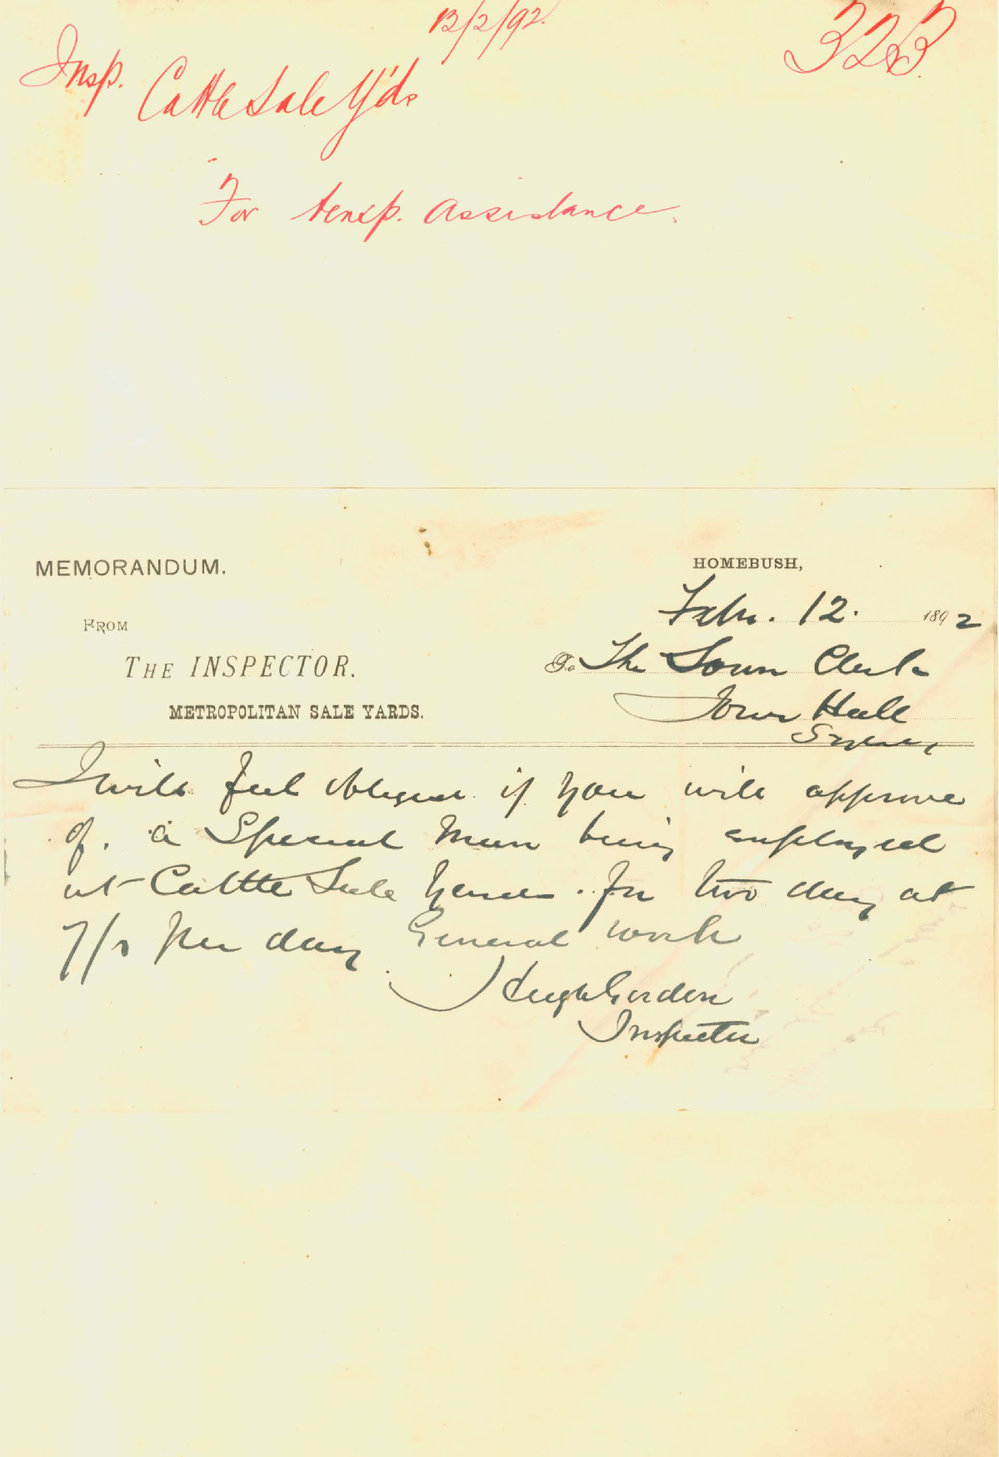 12/2/92.
323
Insp. Cattle Sale Y'ds
For temp. assistance.
MEMORANDUM.
HOMEBUSH,
Febr. 12. 1892
FROM
THE INSPECTOR.
To The Town Clerk
METROPOLITAN SALE YARDS.
Town Hall
Sydney
I will feel obliged if you will approve
of. a Special Man being employed
at Cattle Sale Yards. for two day at
7/s per day General work
Hugh Gordon
Inspector